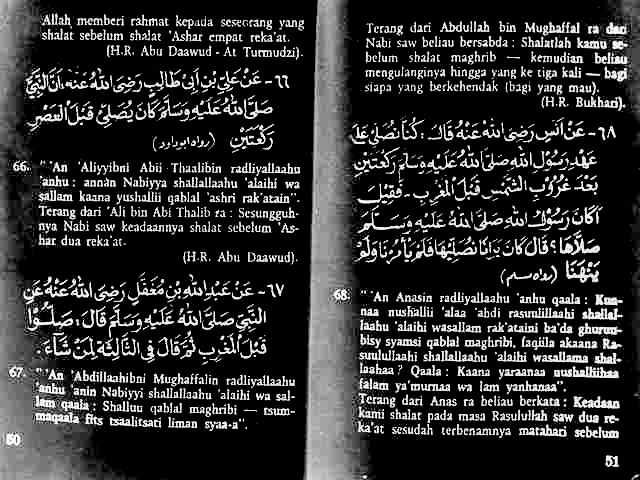 Allah memberi rahmat kepada seseorang yang
shalat sebelum shalat 'Ashar empat reka'at.
(H.R. Abu Daawud - At Turmudzi).
٦٦- عَنْ عَلِيِّ بْنِ اَبِي طَالِبٍ رَضِيَ اللهُ عَنْهُ، اَنَّ النَّبِيَّ
صَلَّى اللهُ عَلَيْهِ وَسَلَّمَ كَانَ يُصَلِّي قَبْلَ الْعَصْرِ
رَكْعَتَيْنِ (رواه ابوداود)
66. "'An 'Aliyyibni Abii Thaalibin radliyallaahu
'anhu : annan Nabiyya shallallaahu 'alaihi wa
sallam kaana yushallii qablal 'ashri rak'atain".
Terang dari 'Ali bin Abi Thalib ra : Sesungguh-
nya Nabi saw keadaannya shalat sebelum 'As-
har dua reka'at.
(H.R. Abu Daawud).
٦٧- عَنْ عَبْدِ اللهِ بْنِ مُغَفَّلٍ رَضِيَ اللهُ عَنْهُ عَنِ
النَّبِيِّ صَلَّى اللهُ عَلَيْهِ وَسَلَّمَ قَالَ: صَلُّوْا
قَبْلَ الْمَغْرِبِ ثُمَّ قَالَ فِي الثَّالِثَةِ لِمَنْ شَاءَ.
67. "'An 'Abdillaahibni Mughaffalin radliyallaahu
'anhu 'anin Nabiyyi shallallaahu 'alaihi wa sal-
lam qaala : Shalluu qablal maghribi — tsum-
maqaala fits tsaalitsati liman syaa-a".
50
Terang dari Abdullah bin Mughaffal ra dan
Nabi saw beliau bersabda : Shalatlah kamu se-
belum shalat maghrib — kemudian beliau
mengulanginya hingga yang ke tiga kali — bagi
siapa yang berkehendak (bagi yang mau).
(H.R. Bukhari).
٦٨- عَنْ اَنَسٍ رَضِيَ اللهُ عَنْهُ قَالَ: كُنَّا نُصَلِّي عَلَى
عَهْدِ رَسُوْلِ اللهِ صَلَّى اللهُ عَلَيْهِ وَسَلَّمَ رَكْعَتَيْنِ
بَعْدَ غُرُوْبِ الشَّمْسِ قَبْلَ الْمَغْرِبِ. فَقِيْلَ
اَكَانَ رَسُوْلُ اللهِ صَلَّى اللهُ عَلَيْهِ وَسَلَّمَ
صَلَّاهَا؟ قَالَ كَانَ يَرَانَا نُصَلِّيْهَا فَلَمْ يَأْمُرْنَا وَلَمْ
يَنْهَنَا (رواه مسلم)
68. "'An Anasin radliyallaahu 'anhu qaala : Kun-
naa nushallii 'alaa 'abdi rasulillaahi shallal-
laahu 'alaihi wasallam rak'ataini ba'da ghurun-
bisy syamsi qablal maghribi, faqiila akaana Ra-
suulullaahi shallallaahu 'alaihi wasallama shal-
laahaa ? Qaala : Kaana yaraanaa nushalliihaa
falam ya'murnaa wa lam yanhanaa".
Terang dari Anas ra beliau berkata : Keadaan
kami shalat pada masa Rasulullah saw dua re-
ka'at sesudah terbenamnya matahari sebelum
51